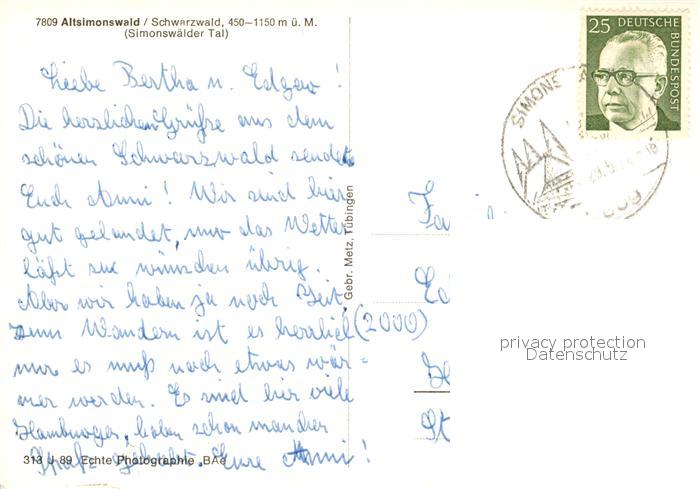 7809 Altsimonswald / Schwarzwald, 450–1150 m ü. M.
(Simonswälder Tal)
Liebe Bertha u. Edgar!
Die herzlichen Grüße aus dem
schönen Schwarzwald sendet
Euch Anni! Wir sind hier
gut gelandet, nur das Wetter
läßt zu wünschen übrig.
Aber wir haben ja noch Zeit,
zum Wandern ist es herrlich
nur es muß noch etwas wär=
mer werden. Es sind hier viele
Hamburger, haben schon manchen
Spaß gehabt. Eure Anni!
313 J 89 Echte Photographie BAe
Gebr. Metz, Tübingen
25 DEUTSCHE
BUNDESPOST
SIMONS
Fa
Ed
(2000)
St
privacy protection
Datenschutz